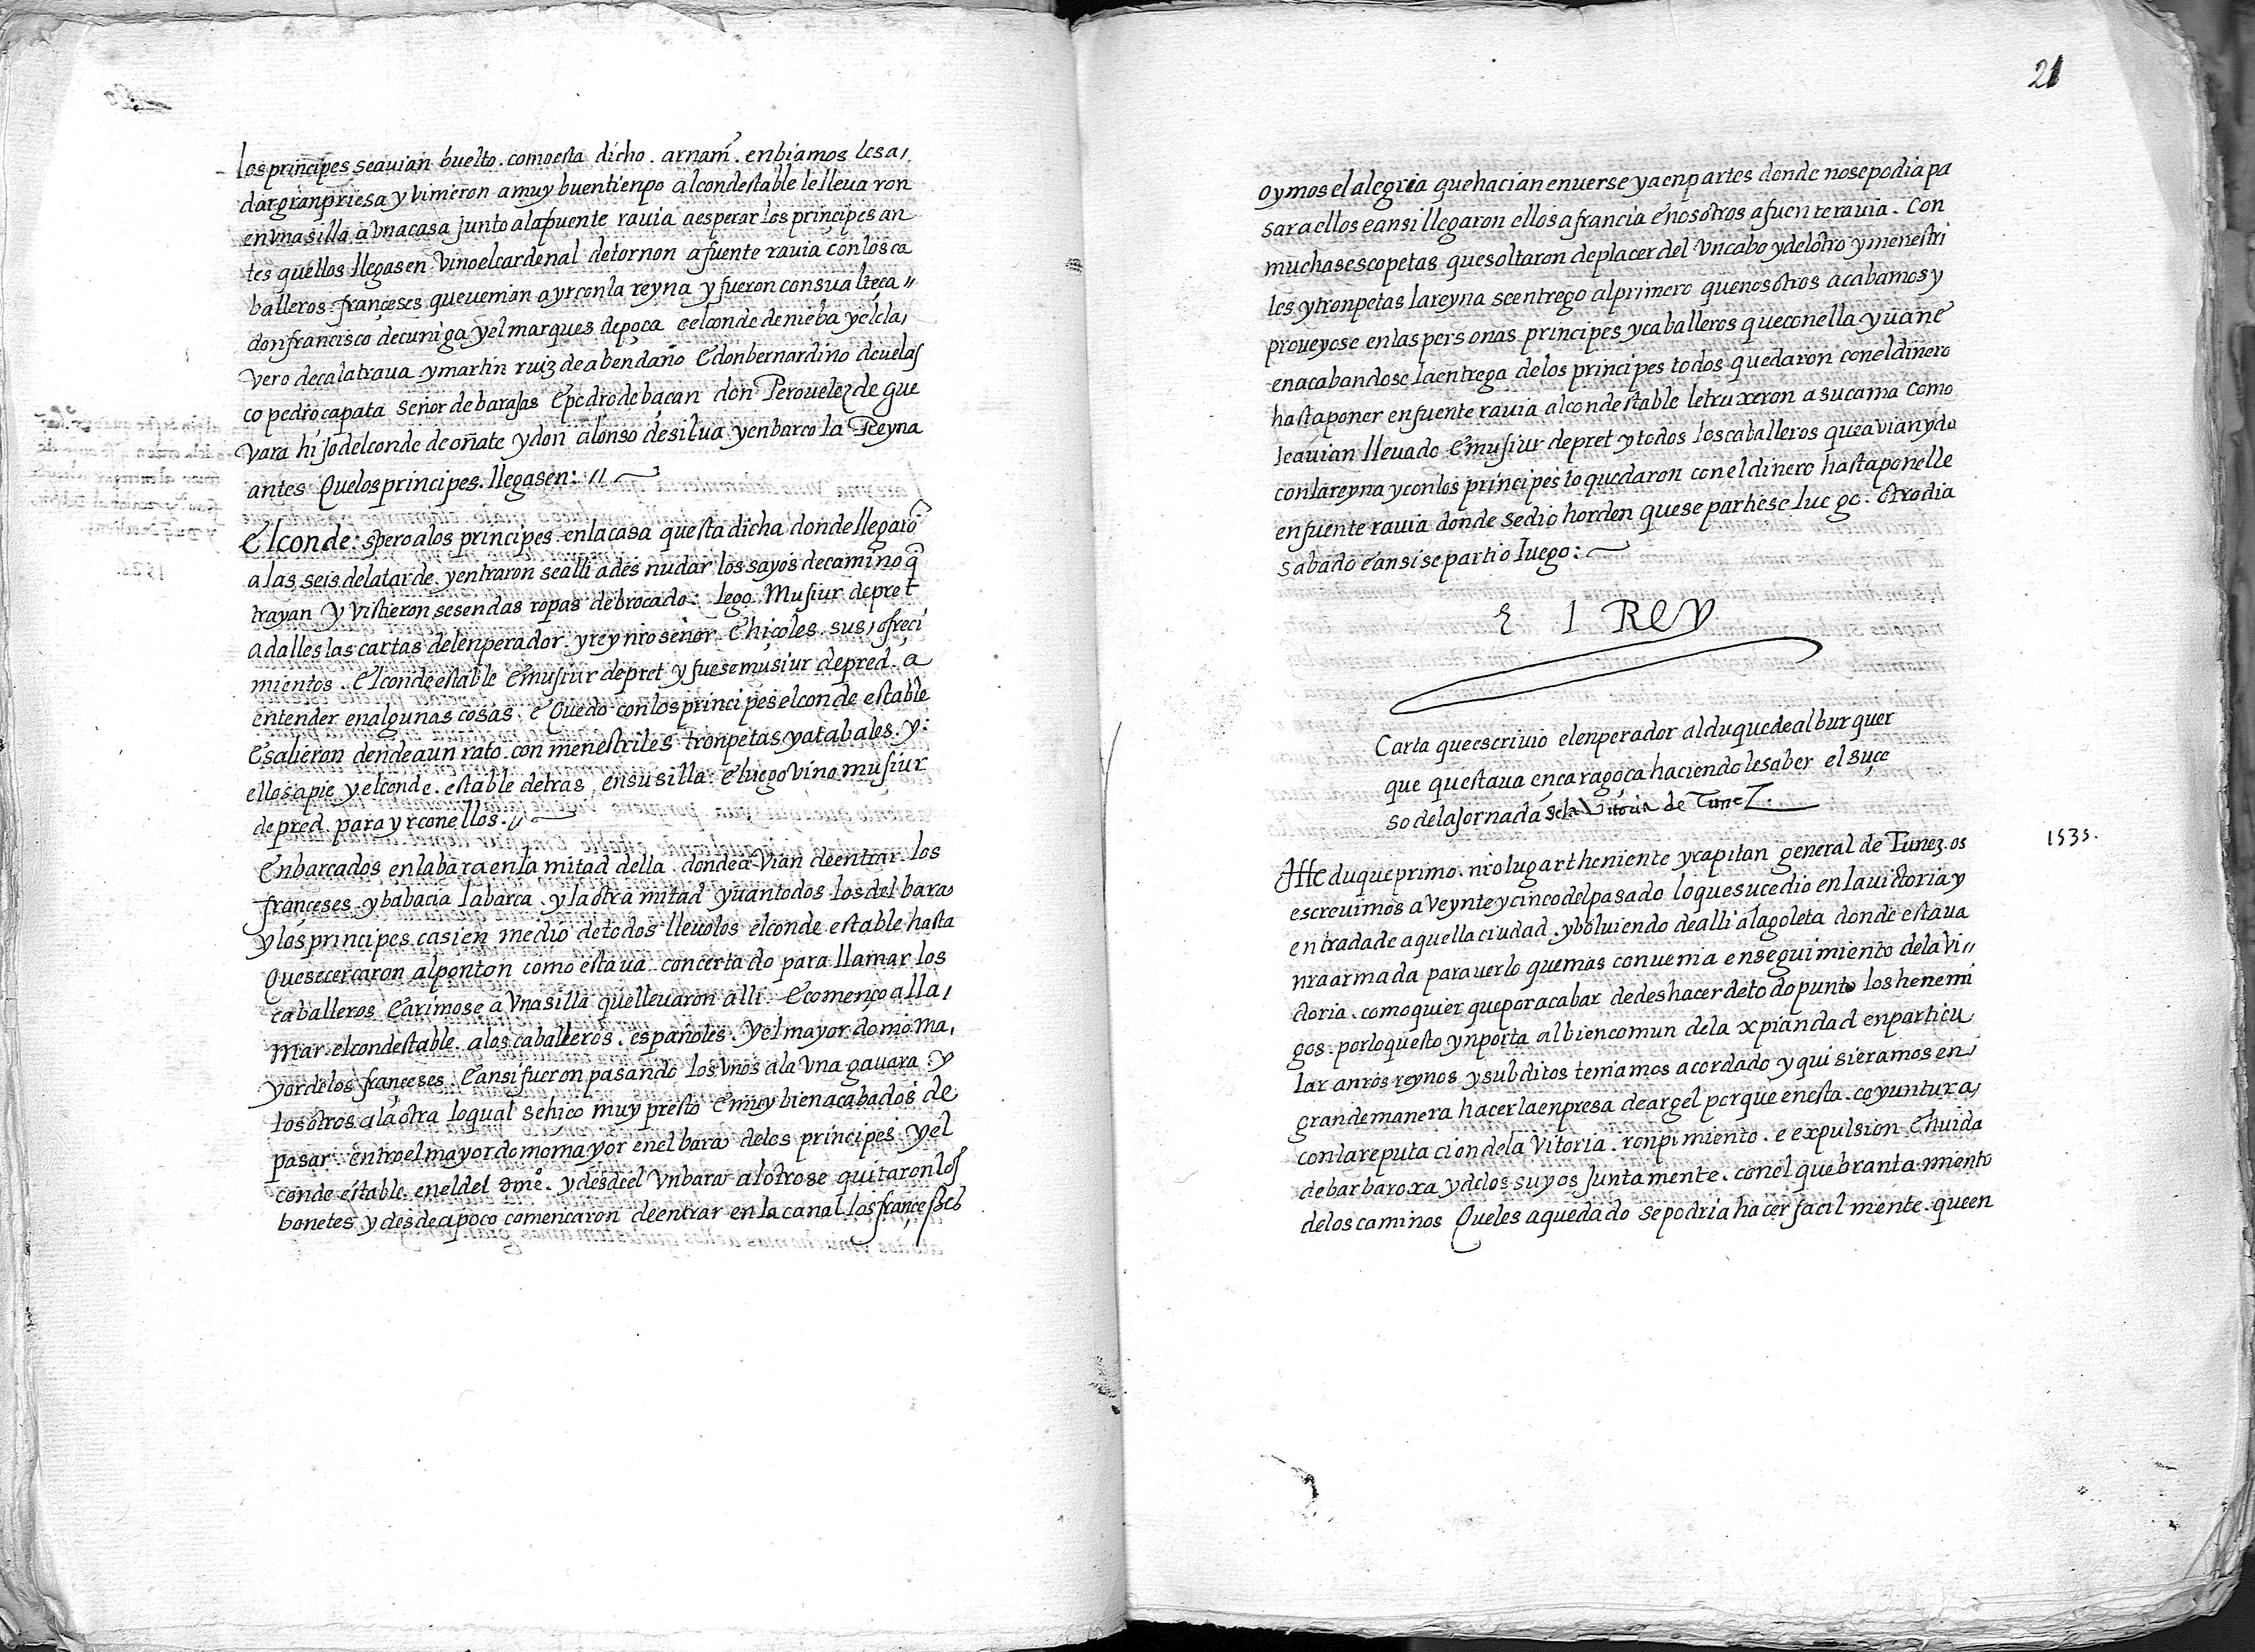 los principes se auian buelto. como esta dicho. a rnam̃. enbiamos les a,
dar gran priesa y vinieron a muy buen tienpo al condestable le lleua ron
en vna silla a vna casa junto a la fuente rauia a esperar los principes an
tes quellos llegasen. Vino el cardenal de tornon a fuente rauia con los ca
balleros. françeses que venian a yr con la reyna y fueron con su alteça //
don francisco de cuniga y el marques de poça e el conde de nieba y el cla,
vero de calatraua y martin ruiz de abendaño E don bernardino de uelas
co pedro çapata señor de barajas E pedro de baçan don Pero uelez de gue
vara hijo del conde de oñate y don alonso de silua y enbarco la Reyna
antes Que los principes. llegasen: //
El conde: spero a los principes en la casa questa dicha donde llegarõ
a las seis de la tarde. y entraron se alli a des nudar los sayos de camino q̃
trayan y vistieron se sendas ropas de brocado: lego Musiur de pret
a dalles las cartas del enperador y rey nrõ señor. E hiçoles. sus, ofreci
mientos. el condeestable E musiur de pret y fuese musiur de pred. a
entender en algunas cosas. e Quedo con los principes el conde estable
E salieron dende a un rato con menestriles tronpetas y atabales. y:
ellos a pie y el conde. estable detras en su silla: E luego vino musiur
de pred. para yr con ellos. //
Enbarcados en la barca en la mitad della donde a Vian de entrar los
françeses y babacia la barca. y la otra mitad yuan todos los del barco
y los principes casi en medio de todos lleuolos el conde estable hasta
Que se cercaron al ponton como estaua concertado para llamar los
caballeros E arimose a vna silla que lleuaron alli. E començo a lla,
mar. el condestable. a los caballeros. españoles. y el mayor domo ma,
yor de los françeses. E ansi fueron pasando los vnos a la vna gauara y
los otros a la otra lo qual se hiço muy presto E muy bien acabados de
pasar. entro el mayordomo mayor en el barco de los principes y el
conde estable. en el del ome. y desde el vn barco al otro se quitaron los
bonetes y desde a poco començaron de entrar en la canal los françeses
21
oymos el alegria que hacian en uerse ya en partes donde no se podia pa
sar a ellos e ansi llegaron ellos a francia E nosotros a fuenterauia. Con
muchas escopetas que soltaron de placer del vn cabo y del otro y menestri
les y tronpetas la reyna se entrego al primero que nosotros acabamos y
proueyose en las personas principes y caballeros que con ella yuan e
en acabandose la entrega de los principes todos quedaron con el dinero
hasta poner en fuente rauia al condestable le truxeron a su cama como
le auian lleuado E musiur de pret y todos los caballeros que avian ydo
con la reyna y con los principes to quedaron con el dinero hasta ponelle
en fuente rauia donde se dio horden que se partiese lue go. otro dia
sabado E ansi se partio luego:
E l REY
Carta que escriuio el enperador al duque de alburquer
que questaua en çaragoça haciendole saber el suçe
so de la Jornada de la Vitoria de TuneZ.
1535.
Ill.e duque primo. nrõ lugartheniente y capitan general de Tunez. os
escreuimos a veynte y cinco del pasado lo que sucedio en la victoria y
entrada de aquella ciudad. y boluiendo de alli a la goleta donde estaua
nra armada para uer lo que mas conuenia en seguimiento de la vi //
ctoria. como quier que por acabar de deshacer de todo punto los henemi
gos. por lo questo ynporta al bien comun de la xpiandad en particu
lar a nrõs reynos y subditos teniamos acordado y quisieramos en,
grande manera hacer la enpresa de argel porque en esta. coyuntura,
con la reputacion de la Vitoria. ronpimiento. e expulsion E huida
de barbaroxa y de los suyos juntamente. con el quebranta miento
de los caminos Que les a quedado se podria hacer facil mente. que en